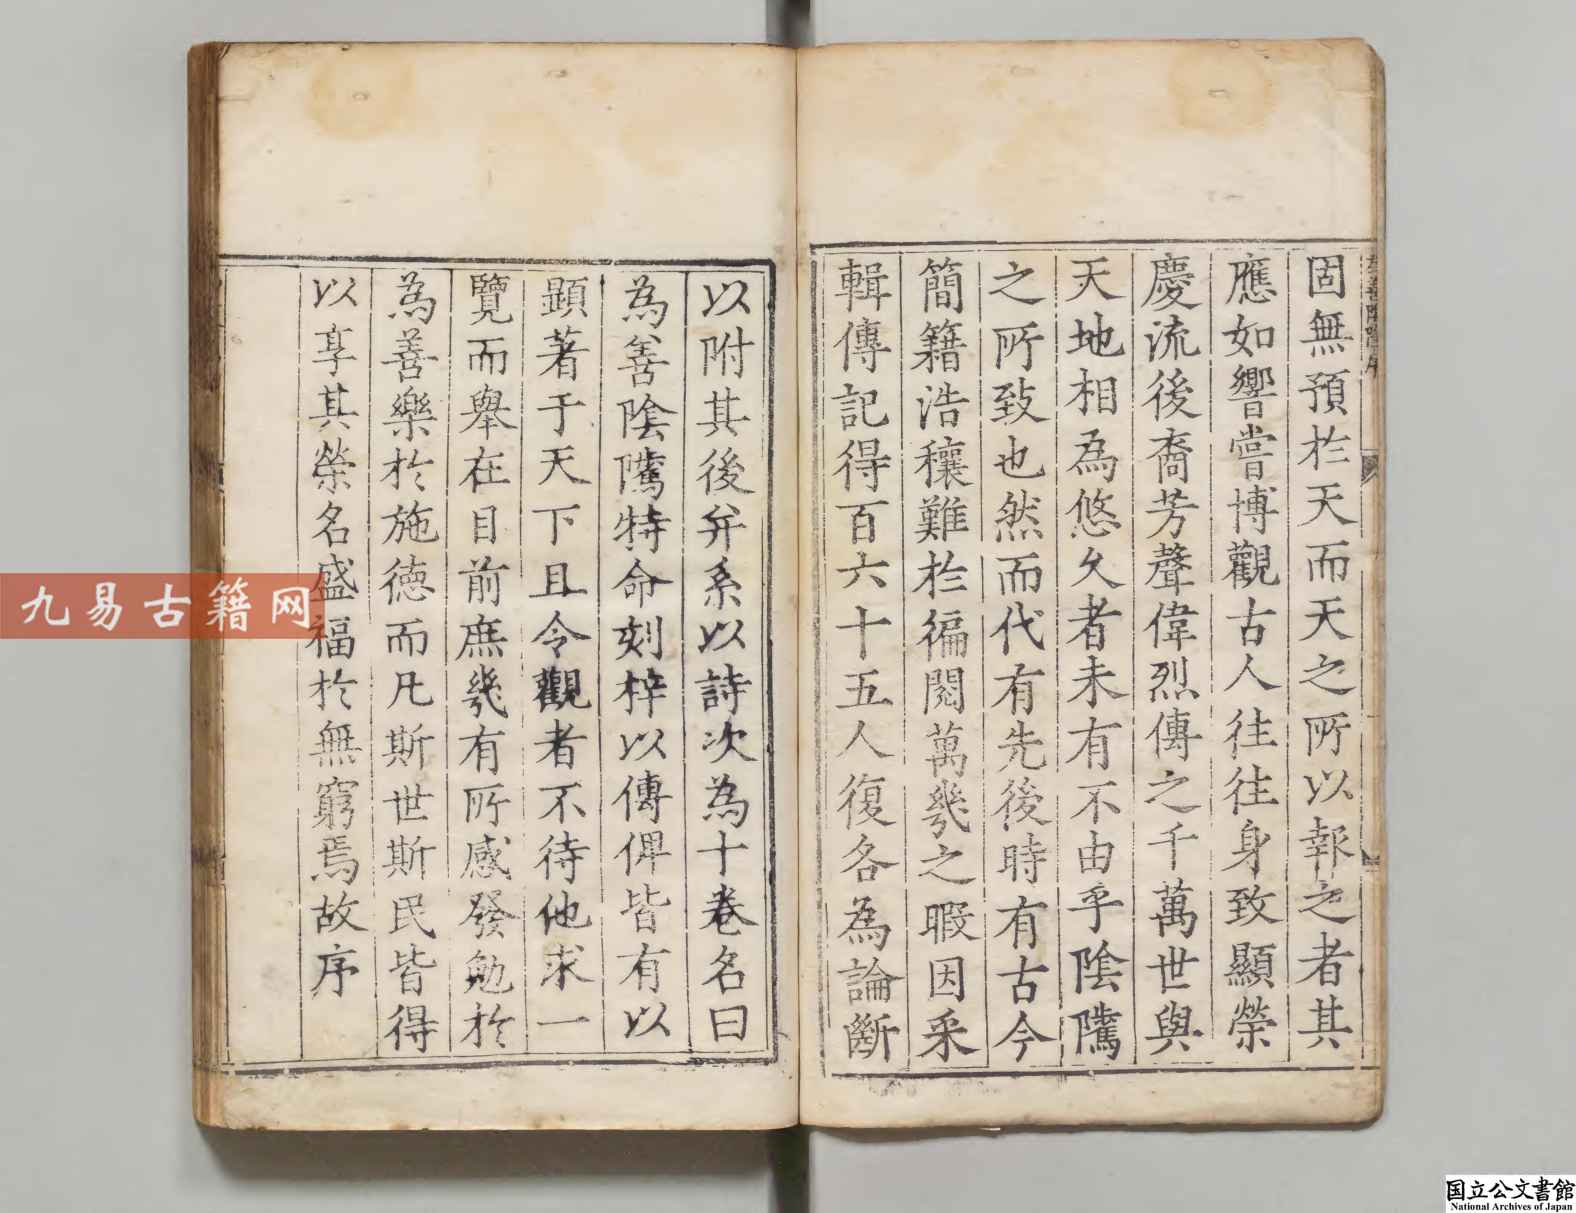 固無預於天而天之所以報之者其
應如響嘗博觀古人往往身致顯榮
慶流後裔芳聲偉烈傳之千萬世與
天地相為悠久者未有不由乎陰隲
之所致也然而代有先後時有古今
簡籍浩穰難於徧閱萬幾之暇因采
輯傳記得百六十五人復各為論斷
以附其後并系以詩次為十卷名曰
為善陰隲特命刻梓以傳俾皆有以
顯著于天下且令觀者不待他求一
覽而舉在目前庶幾有所感發勉於
為善樂於施德而凡斯世斯民皆得
以享其榮名盛福於無窮焉故序
九易古籍网
国立公文書館
National Archives of Japan